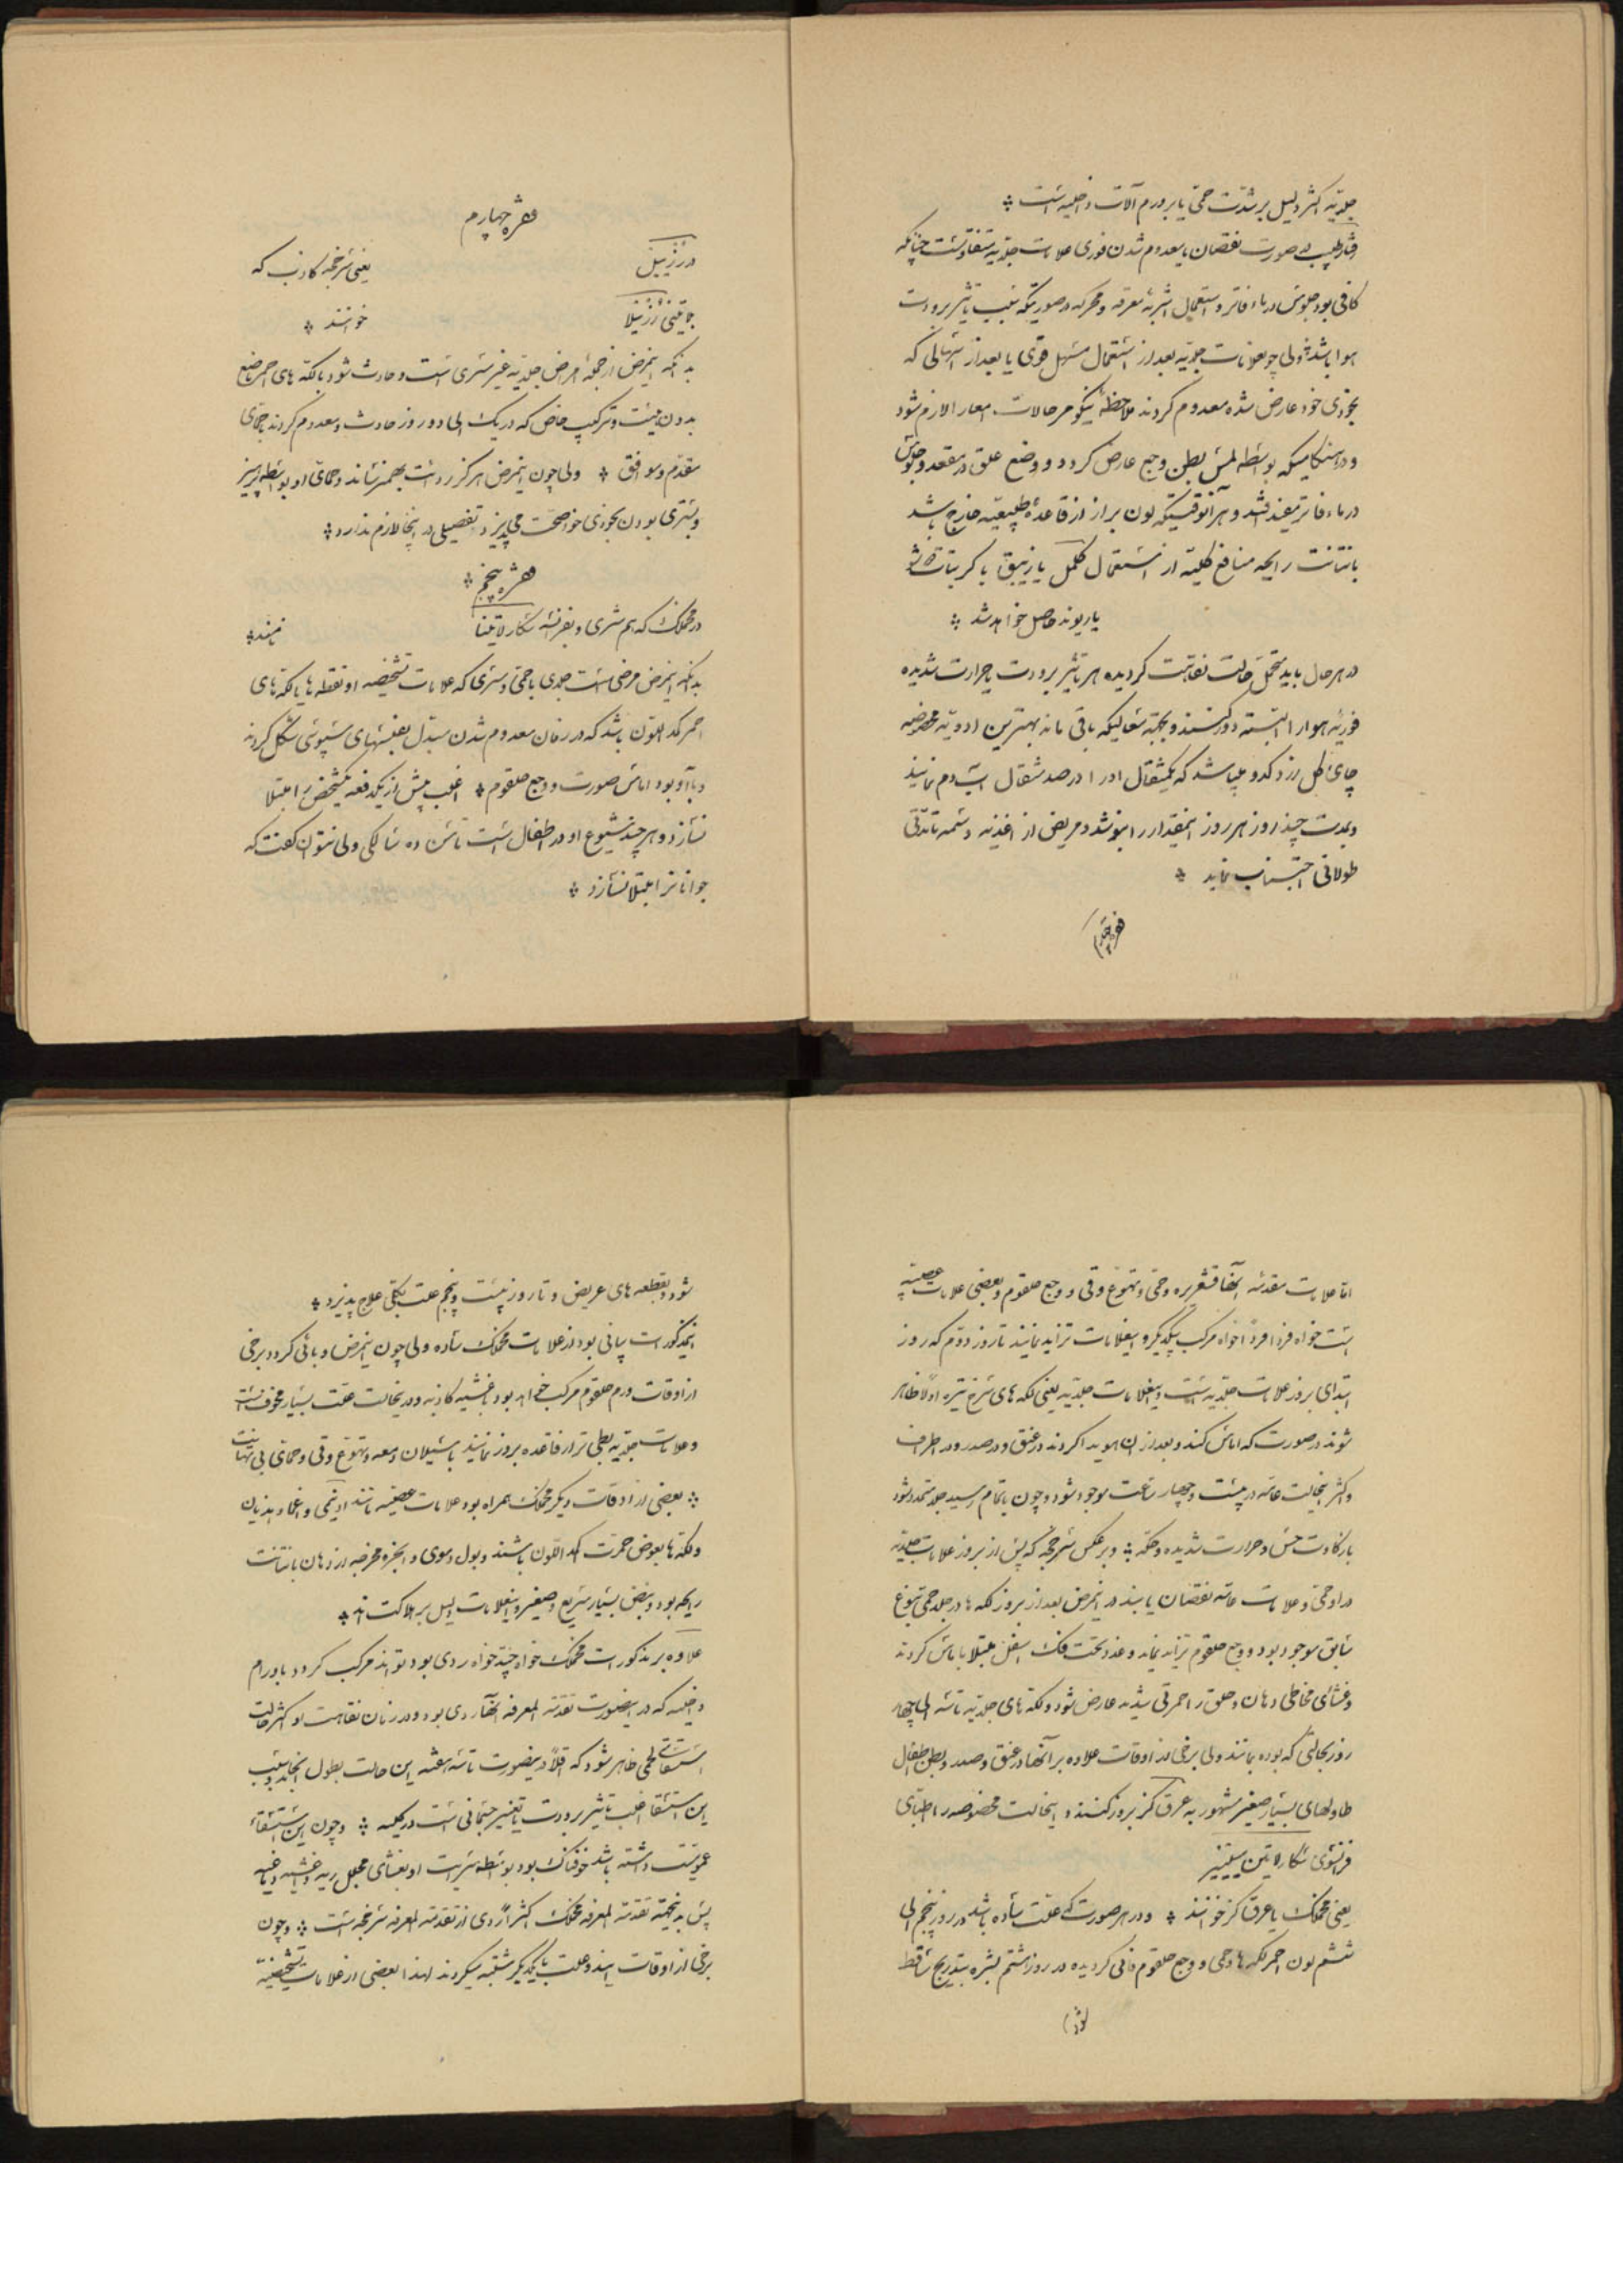 جلدیه اکثر دلیل بر شدت حمی یا بر ورم آلات داخلیه است
رفتار طبیب در صورت نقصان یا معدوم شدن فوری علامات جلدیه متفاوتست چنانکه
کافی بود جلوس در ماء فاتر و استعمال اشربه معرقه و محرکه در صورتیکه سبب تاثیر برودت
هوا باشد ولی چو علامات جلدیه بعد از استعمال مسهل قوی یا بعد از اسهالی که
بخودی خود عارض شده معدوم کردند ملاحظه نیکو در حالات امعار لازم شود
و در هنگامیکه بواسطه لمس بطن وجع عارض کردد و وضع علق در مقعد و جلوس
در ماء فاتر مفید افتد و هر آنوقتیکه لون براز از قاعده طبیعیه خارج باشد
با نتانت رایحه منافع کلیه از استعمال کلمل یا زیبق با کربنات
یا ریوند حاصل خواهد شد
در هر حال باید متحمل حالت نقاهت کردیده هر تاثیر برودت یا حرارت شدیده
فوریه هوا را البته دور کنند و بجهة سعالیکه باقی ماند بهترین ادویه مخصوصه
چای کل زرد کدو میباشد که یکمثقال او را در صد مثقال آب دم نمایند
و بمدت چند روز هر روز اینمقدار را بنوشد و مریض از اغذیه دسمه تا مدتی
طولانی اجتناب نماید
فقره چهارم
فقره چهارم
در رزئیل یعنی سرخجه کاذب که
بلاتینی رزئیلا خوانند
بدانکه اینمرض از جمله امراض جلدیه غیر مسری است و حادث شود با لکه های احمر ناضع
بدون هیئت و ترکیب خاص که در یک الی دو روز حادث و معدوم کردند با حمای
مقدم و موافق ولی چون اینمرض هرگز ردائت بهم نرساند و حمای او بواسطه پرهیز
و بستری بودن بخودی خود صحت می پذیرد تفصیلی در اینجا لازم ندارد
فقره پنجم
در مخملک که هم مسری و بفرانسه سکارلاتینا نامند
بدانکه اینمرض مرضی است جلدی با حمی و مسری که علامات تشخیصیه او نقطه ها یا لکه های
احمر کدر اللون باشد که در زمان معدوم شدن مبدل بفلسهای سبوسی شکل کردند
و با او بود آماس صورت و وجع حلقوم اغلب بیش از یکدفعه یکشخص را مبتلا
نسازد و هر چند شیوع او در اطفال است تا سن ده سالکی ولی نتوان گفت که
جوانانرا مبتلا نسازد
اما علامات مقدمه آنها قشعریره و حمی و تهوع و قی و وجع حلقوم و بعضی علامات عصبیه
است خواه فردا فردا خواه مرکب بیکدیگر و اینعلامات تزاید نمایند تا روز دوم که روز
ابتدای بروز علامات جلدیه است و اینعلامات جلدیه یعنی لکه های سرخ تیره اولا ظاهر
شوند در صورت که آماس کند و بعد از آن هویدا کردند در عنق و در صدر و در اطراف
و اکثر اینحالت عامه در بیست و چهار ساعت موجود شود و چون باتمام رسید جلد متمدد شود
با ذکاوت حس و حرارت شدیده و حکه و بر عکس سرخجه که پس از بروز علامات جلدیه
در او حمی و علامات عامه نقصان یابند در اینمرض بعد از بروز لکه ها در جلد حمی بنوع
سابق موجود بود و وجع حلقوم تزاید نماید و غدد تحت فک اسفل مبتلا باماس کردند
و غشای مخاطی دهان و حلق را حمرتی شدید عارض شود و لکه های جلدیه تا سه الی چهار
روز بحالتی که بوده بمانند ولی برخی از اوقات علاوه بر آنها در عنق و صدر و بطن اطفال
طاولهای بسیار صغیر مشهور به عرق کز بروز کنند و اینحالت مخصوصه را اطبای
فرانسوی سکارلاتین
یعنی مخملک با عرق کز خوانند و در هر صورت که علت ساده باشد در روز پنجم الی
ششم لون احمر لکه ها و حمی و وجع حلقوم فانی کردیده در روز هشتم بشره بتدریج ساقط
شود
شود بقطعه های عریض و تا روز بیست و پنجم علت بکلی علاج پذیرد
اینمذکورات بیانی بود از علامات مخملک ساده ولی چون اینمرض وبائی کردد برخی
از اوقات ورم حلقوم مرکب خواهد بود باغشیه کاذبه و در اینحالت علت بسیار مخوف است
و علامات جلدیه بطی تر از قاعده بروز نمایند با سیلان دمعه و تهوع و قی و حمای بی نهایت
بعضی از اوقات دیگر مخملک همراه بود علامات عصبیه مانند اونیمی و اغما و هذیان
و لکه ها بعوض حمرت کمد اللون باشند و بول دموی و ابخره مخرجه از دهان با نتانت
رایحه بود و نبض بسیار سریع و صغیر و اینعلامات دلیل بر هلاکت اند
علاوه بر مذکورات مخملک خواه جید خواه ردی بود تواند مرکب کردد باورام
داخلیه که در اینصورت تقدمه المعرفه آنها ردی بود و در زمان نقاهت او اکثر حالت
استسقای لحمی ظاهر شود که اقلا در اینصورت تا سه هفته این حالت بطول انجامد و سبب
این استسقا اغلب تاثیر برودت یا تغییر جسمانی است در کلیه و چون این استسقاء
عمومیت داشته باشد خوفناک بود بواسطه سرایت او بغشای مجلل ریه و اغشیه دماغیه
پس بدینجهة تقدمه المعرفه مخملک اکثرا ردی از تقدمه المعرفه سرخجه است و چون
برخی از اوقات ایندو علت با یکدیگر مشتبه میکردند لهذا بعضی از علامات تشخیصیه